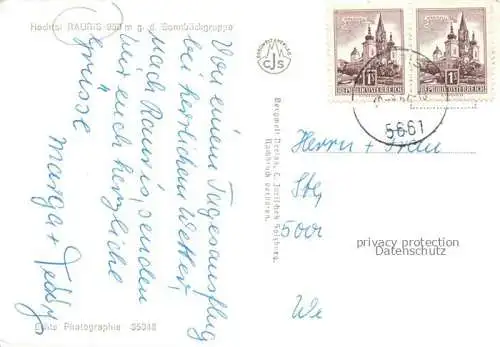 Hochtal RAURIS 950 m g. d. Sonnblickgruppe
Von einem Tagesausflug
bei herrlichem Wetter,
nach Rauris, senden
wir euch herzliche
Grüsse
Margar + Teddy
Echte Photographie 35348
CJS
Bergwelt Verlag, C. Jurischek Salzburg.
Nachdruck verboten.
REPUBLIK ÖSTERREICH
REPUBLIK ÖSTERREICH
5661
Herrn + Frau
privacy protection
Datenschutz
We